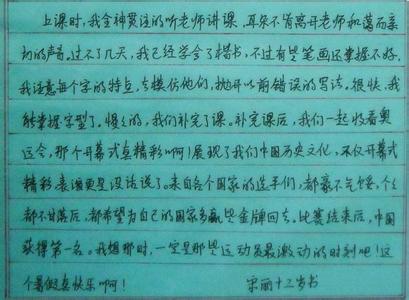 上课时，我全神贯注的听老师讲课，耳朵不肯离开老师和蔼而亲
切的声音。过不了几天，我已经学会了楷书，不过有些笔画还掌握不好，
我注意每个字的特点，去模仿他们，抛开以前错误的写法。很快，我
能掌握字型了。慢慢的，我们补完了课。补完课后，我们一起收看奥
运会，那个开幕式真精彩啊！展现了我们中国历史文化，不仅开幕式
精彩，表演更是没话说了。来自各个国家的选手们，都毫不气馁，个个
都不甘落后，都希望为自己的国家多赢些金牌回去。比赛结束后，中国
获得第一名。我想那时，一定是那些运动员最激动的时刻吧！这
个暑假真快乐啊！ 宋丽十三岁书